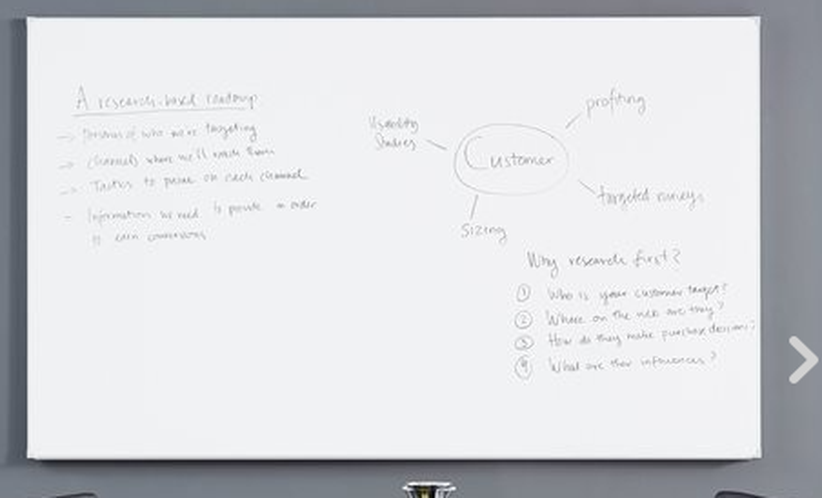 A research-based roadmap
→ Personas of who we're targeting
→ Channels where we'll reach them
→ Tactics to pursue on each channel
- Information we need to provide in order
to earn conversions
Usability
Studies
Customer
profiting
targeted surveys
Sizing
Why research first?
① Who is your customer target?
② Where on the web are they?
③ How do they make purchase decisions?
④ What are their influences?